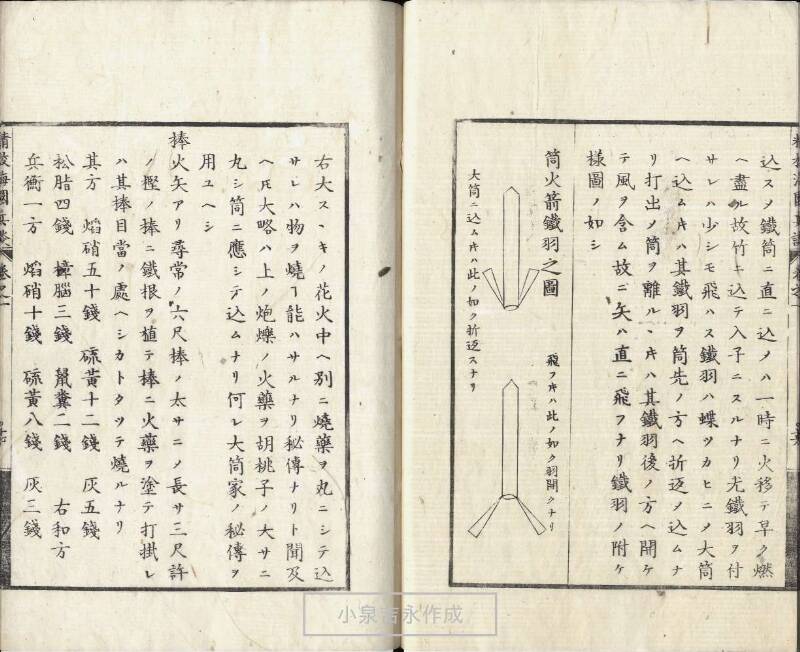 込スメ鐵筒ニ直ニ込メハ一時ニ火移テ早ク燃
ヘ盡ル故竹ニ込テ入子ニスルナリ尤鐵羽ヲ付
サレハ少シモ飛ハス鐵羽ハ蝶ツカヒニメ大筒
ヘ込ムキハ其鐵羽ヲ筒先ノ方ヘ折返メ込ムナ
リ打出メ筒ヲ離ルヽキハ其鐵羽後ノ方ヘ開ケ
テ風ヲ含ム故ニ矢ハ直ニ飛フナリ鐵羽ノ附ケ
樣圖ノ如シ
筒火箭鐵羽之圖
飛フキハ此ノ如ク羽開クナリ
大筒ニ込ムキハ此ノ如ク折返スナリ
右大スヽキノ花火中ヘ別ニ燒藥ヲ丸ニシテ込
サレハ物ヲ燒ヿ能ハサルナリ秘傳ナリト聞及
ヘ𪜈大略ハ上ノ炮爍ノ火藥ヲ胡桃子ノ大サニ
丸シ筒ニ應シテ込ムナリ何レ大筒家ノ秘傳ヲ
用ユヘシ
捧火矢アリ尋常ノ六尺捧ノ太サニメ長サ三尺許
ノ樫ノ捧ニ鐵根ヲ植テ捧ニ火藥ヲ塗テ打掛レ
ハ其捧目當ノ處ヘシカトタツテ燒ルナリ
其方 焰硝五十錢 硫黃十二錢 灰五錢
松脂四錢 樟腦三錢 鼠糞二錢 右和方
兵衡一方 焰硝十錢 硫黃八錢 灰三錢
精校海國兵談 卷之一
小泉吉永作成